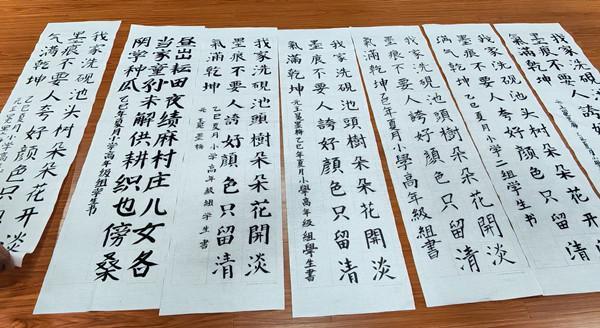 我家洗硯池头树朵朵花开淡
墨痕不要人夸好顔色只留
氣滿乾坤
乙巳夏月小学高年级组学生书
昼出耘田夜绩麻村庄儿女各
当家童孙未解供耕织也傍桑
阴学种瓜
乙巳年夏月小学高年级组学生书
我家洗硯池頭樹朵朵花開淡
墨痕不要人誇好顔色只留清
氣滿乾坤
元王冕墨梅
乙巳夏月小学高年级组学生书
我家洗硯池頭樹朵朵花開淡
墨痕不要人誇好顔色只留清
氣滿乾坤
元王冕墨梅乙巳年夏月小學高年级組學生書
我家洗硯池頭樹朵朵花開淡
墨痕不要人誇好顔色只留清
氣滿乾坤
乙巳年夏月小學高年级組書
我家洗硯池頭樹朵朵花開淡
墨痕不要人誇好顔色只留清
滿气乾坤
乙巳夏月小学二组学生书
我家洗硯池头树朵朵花开淡
墨痕不要人夸好顔色只留
氣滿乾坤